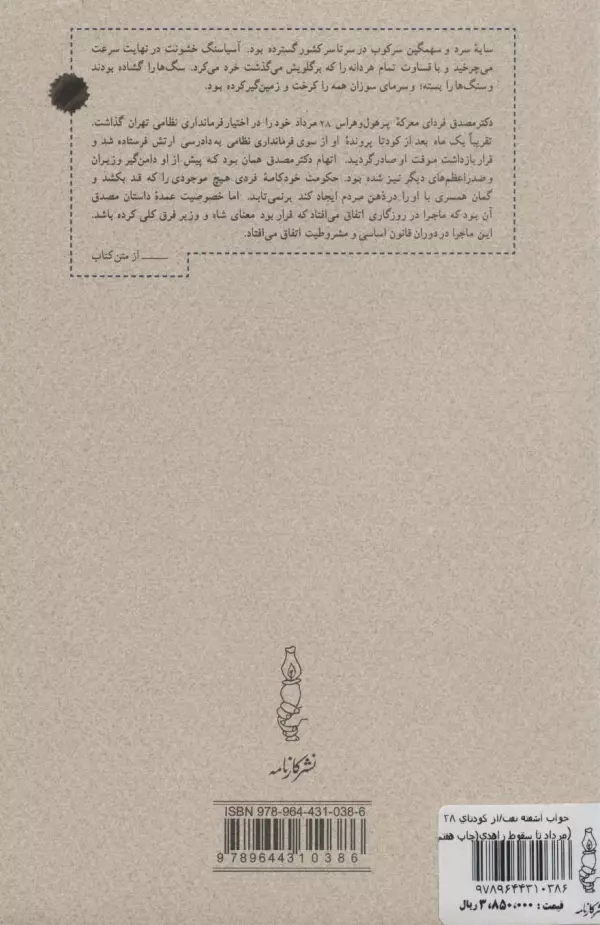 سایهٔ سرد و سهمگین سرکوب در سرتاسر کشور گسترده بود. آسیاسنگ خشونت در نهایت سرعت
می‌چرخید و با قساوت تمام هردانه را که برگلویش می‌گذشت خرد می‌کرد. سگ‌ها را گشاده بودند
و سنگ‌ها را بسته؛ و سرمای سوزان همه را کرخت و زمین‌گیر کرده بود.
دکتر مصدق فردای معرکهٔ پرهول‌وهراس ۲۸ مرداد خود را در اختیار فرمانداری نظامی تهران گذاشت.
تقریباً یک ماه بعد از کودتا پروندهٔ او از سوی فرمانداری نظامی به‌دادرسی ارتش فرستاده شد و
قرار بازداشت موقت او صادر گردید. اتهام دکتر مصدق همان بود که پیش از او دامن‌گیر وزیران
و صدراعظم‌های دیگر نیز شده بود. حکومت خودکامهٔ فردی هیچ موجودی را که قد بکشد و
گمان همسری با او را در ذهن مردم ایجاد کند برنمی‌تابد. اما خصوصیت عمدهٔ داستان مصدق
آن بود که ماجرا در روزگاری اتفاق می‌افتاد که قرار بود معنای شاه و وزیر فرق کلی کرده باشد.
این ماجرا در دوران قانون اساسی و مشروطیت اتفاق می‌افتاد.
از متن کتاب
نشر کارنامه
ISBN 978-964-431-038-6
9 789644 310386
خواب آشفته نفت/از کودتای ۲۸
(مرداد تا سقوط زاهدی(چاپ هفتم
۹۷۸۹۶۴۴۳۱۰۳۸۶
قیمت: ۳،۸۵۰،۰۰۰ ریال
نشر کارنامه